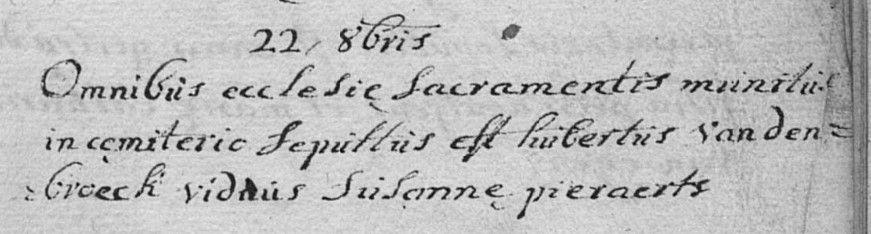 22, 8bris
Omnibus ecclesię sacramentis munitus
in cęmiterio sepultus est hubertus van den=
=broeck viduus Susannę pieraerts